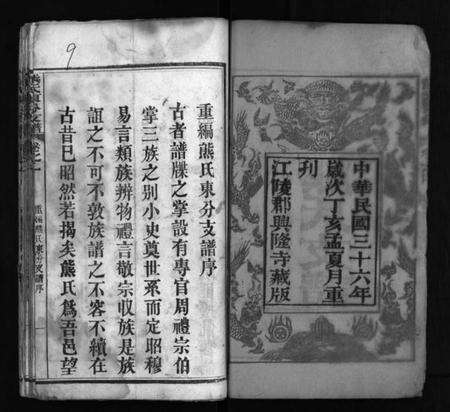 中華民國三十六年
歲次丁亥孟夏月重
刊
江陵郡興隆寺藏版
重編熊氏東分支譜序
古者譜牒之掌設有專官周禮宗伯
掌三族之別小史奠世系而定昭穆
易言類族辨物禮言敬宗收族是族
誼之不可不敦族譜之不容不續在
古昔已昭然若揭矣熊氏爲吾邑望
9